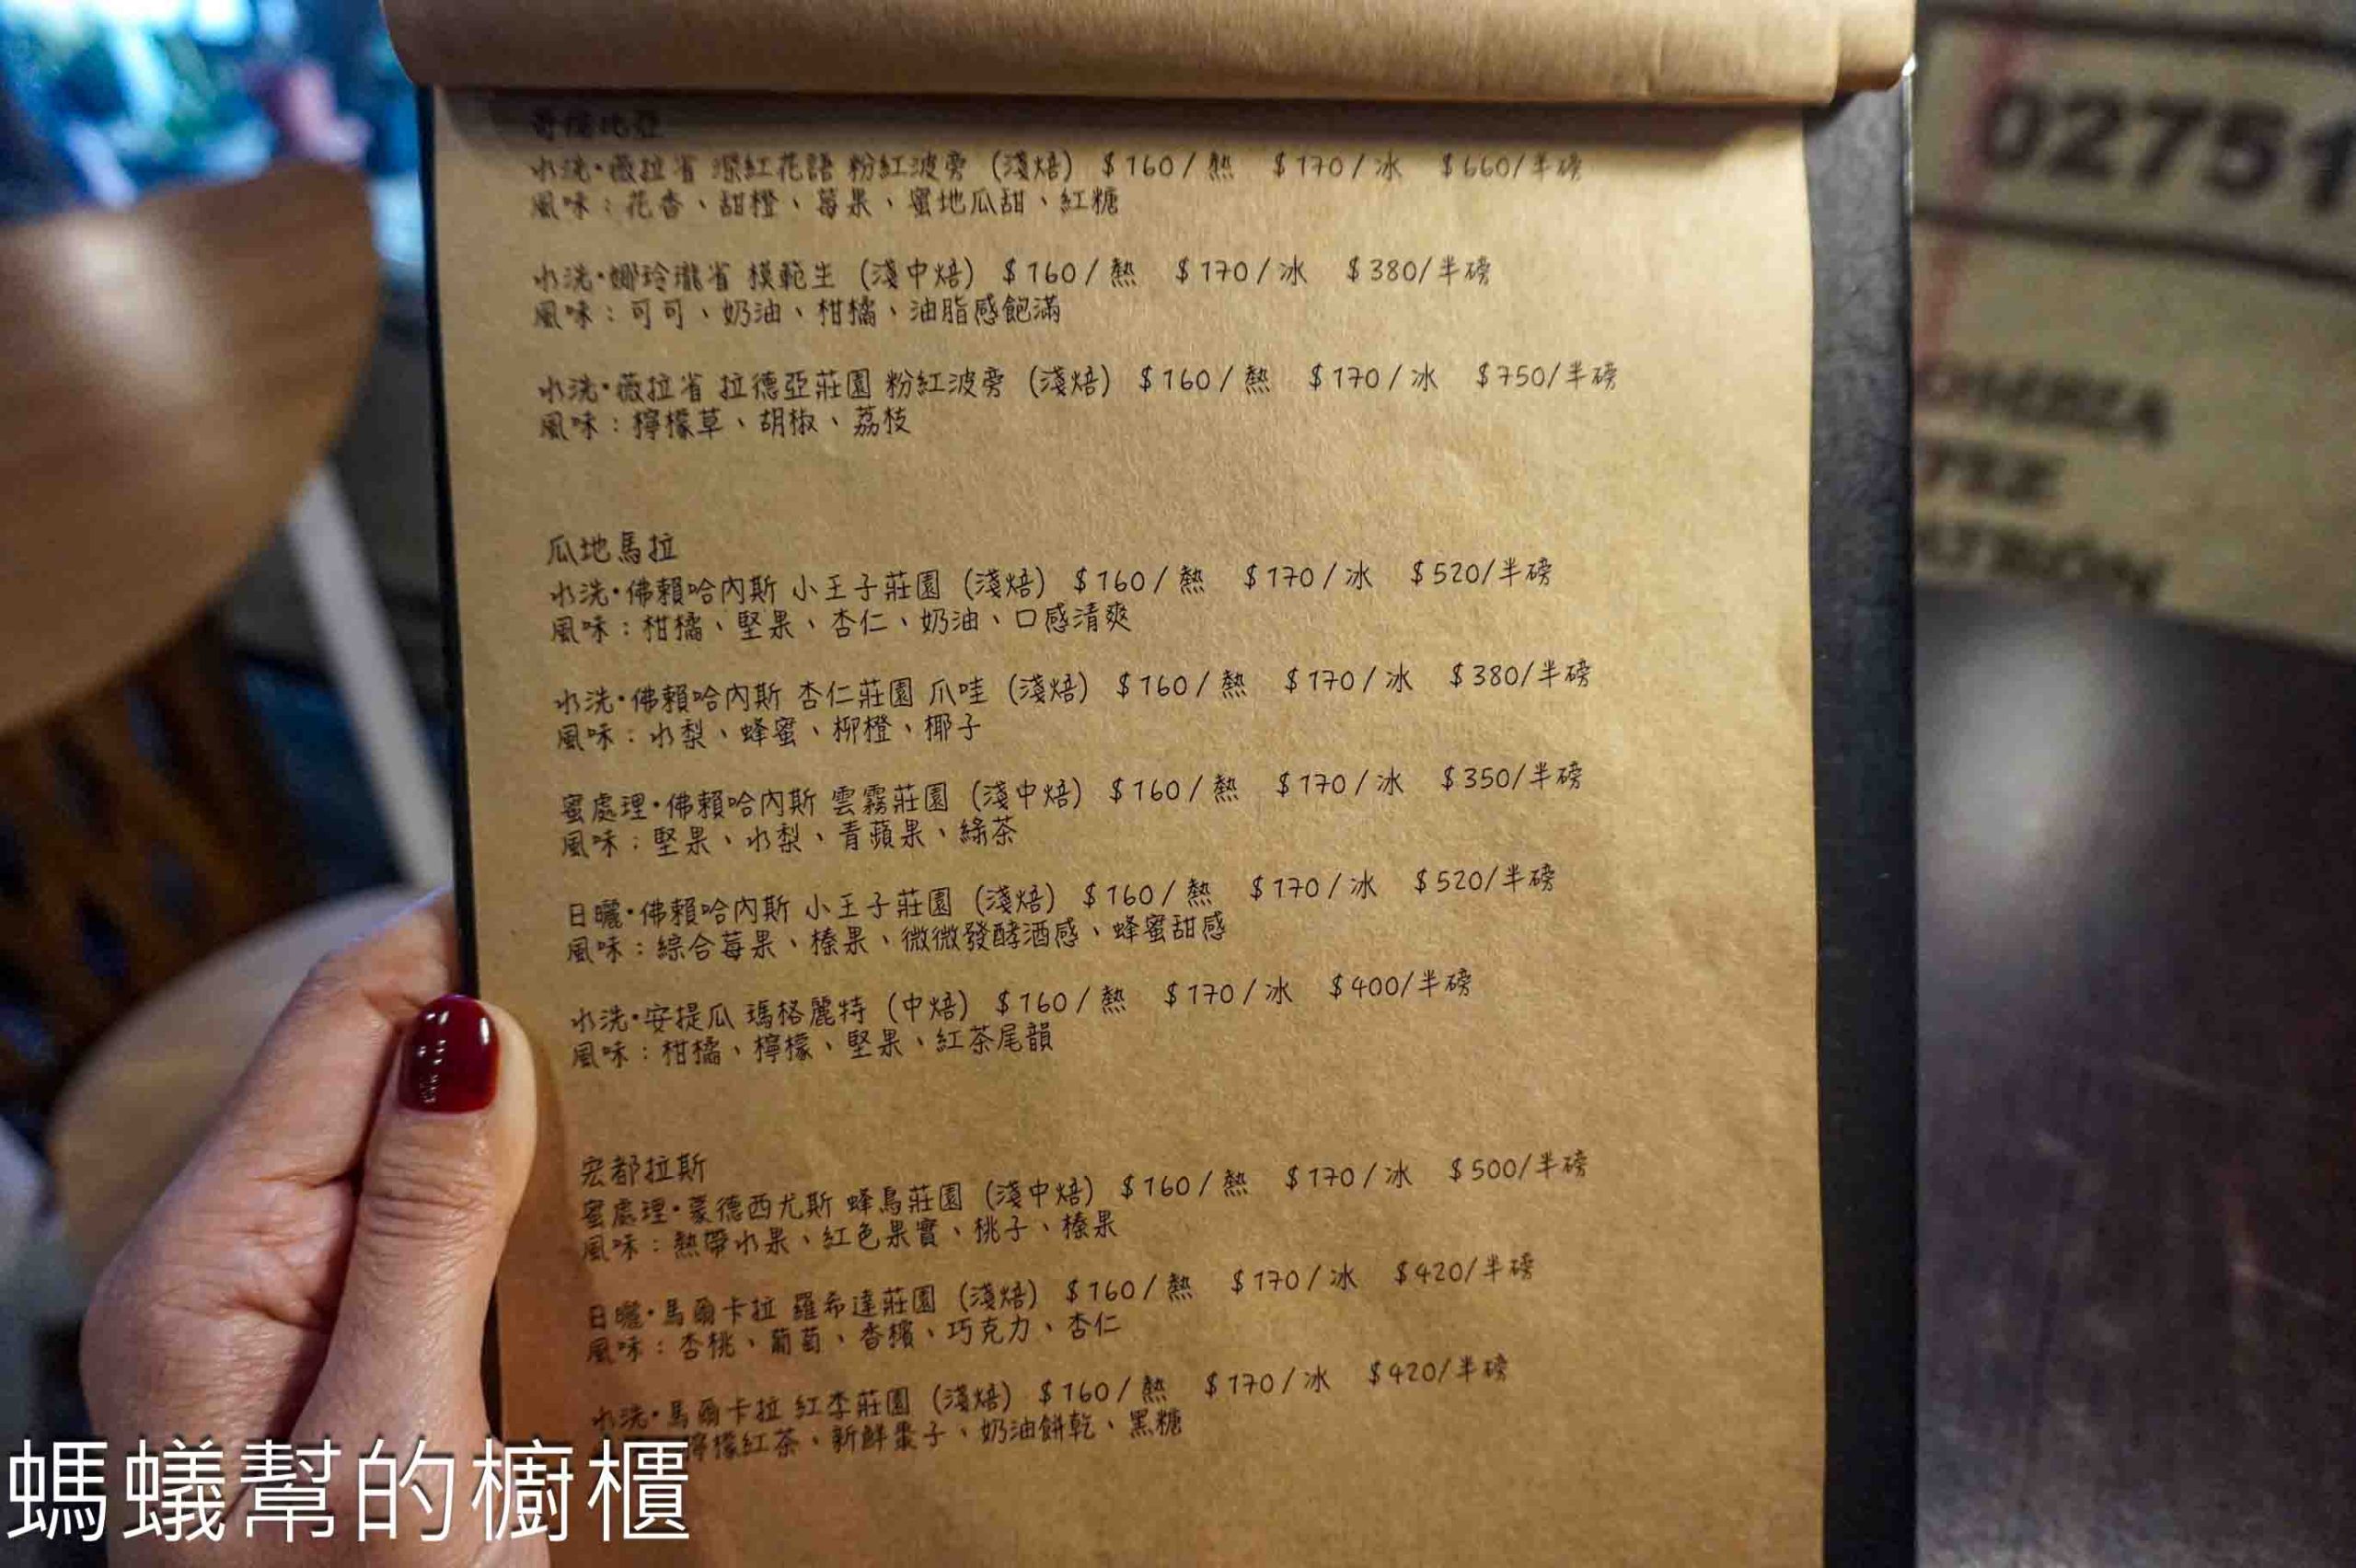 哥倫比亞
水洗・薇拉省 深紅花語 粉紅波旁 (淺焙) $160/熱 $170/冰 $660/半磅
風味：花香、甜橙、莓果、蜜地瓜甜、紅糖
水洗・娜玲瓏省 模範生 (淺中焙) $160/熱 $170/冰 $380/半磅
風味：可可、奶油、柑橘、油脂感飽滿
水洗・薇拉省 拉德亞莊園 粉紅波旁 (淺焙) $160/熱 $170/冰 $750/半磅
風味：檸檬草、胡椒、荔枝
瓜地馬拉
水洗・佛賴哈內斯 小王子莊園 (淺焙) $160/熱 $170/冰 $520/半磅
風味：柑橘、堅果、杏仁、奶油、口感清爽
水洗・佛賴哈內斯 杏仁莊園 爪哇 (淺焙) $160/熱 $170/冰 $380/半磅
風味：水梨、蜂蜜、柳橙、椰子
蜜處理・佛賴哈內斯 雲霧莊園 (淺中焙) $160/熱 $170/冰 $350/半磅
風味：堅果、水梨、青蘋果、綠茶
日曬・佛賴哈內斯 小王子莊園 (淺焙) $160/熱 $170/冰 $520/半磅
風味：綜合莓果、榛果、微微發酵酒感、蜂蜜甜感
水洗・安提瓜 瑪格麗特 (中焙) $160/熱 $170/冰 $400/半磅
風味：柑橘、檸檬、堅果、紅茶尾韻
宏都拉斯
蜜處理・蒙德西尤斯 蜂鳥莊園 (淺中焙) $160/熱 $170/冰 $500/半磅
風味：熱帶水果、紅色果實、桃子、榛果
日曬・馬爾卡拉 羅希達莊園 (淺焙) $160/熱 $170/冰 $420/半磅
風味：杏桃、葡萄、香檳、巧克力、杏仁
水洗・馬爾卡拉 紅李莊園 (淺焙) $160/熱 $170/冰 $420/半磅
檸檬紅茶、新鮮棗子、奶油餅乾、黑糖
螞蟻幫的櫥櫃
02751